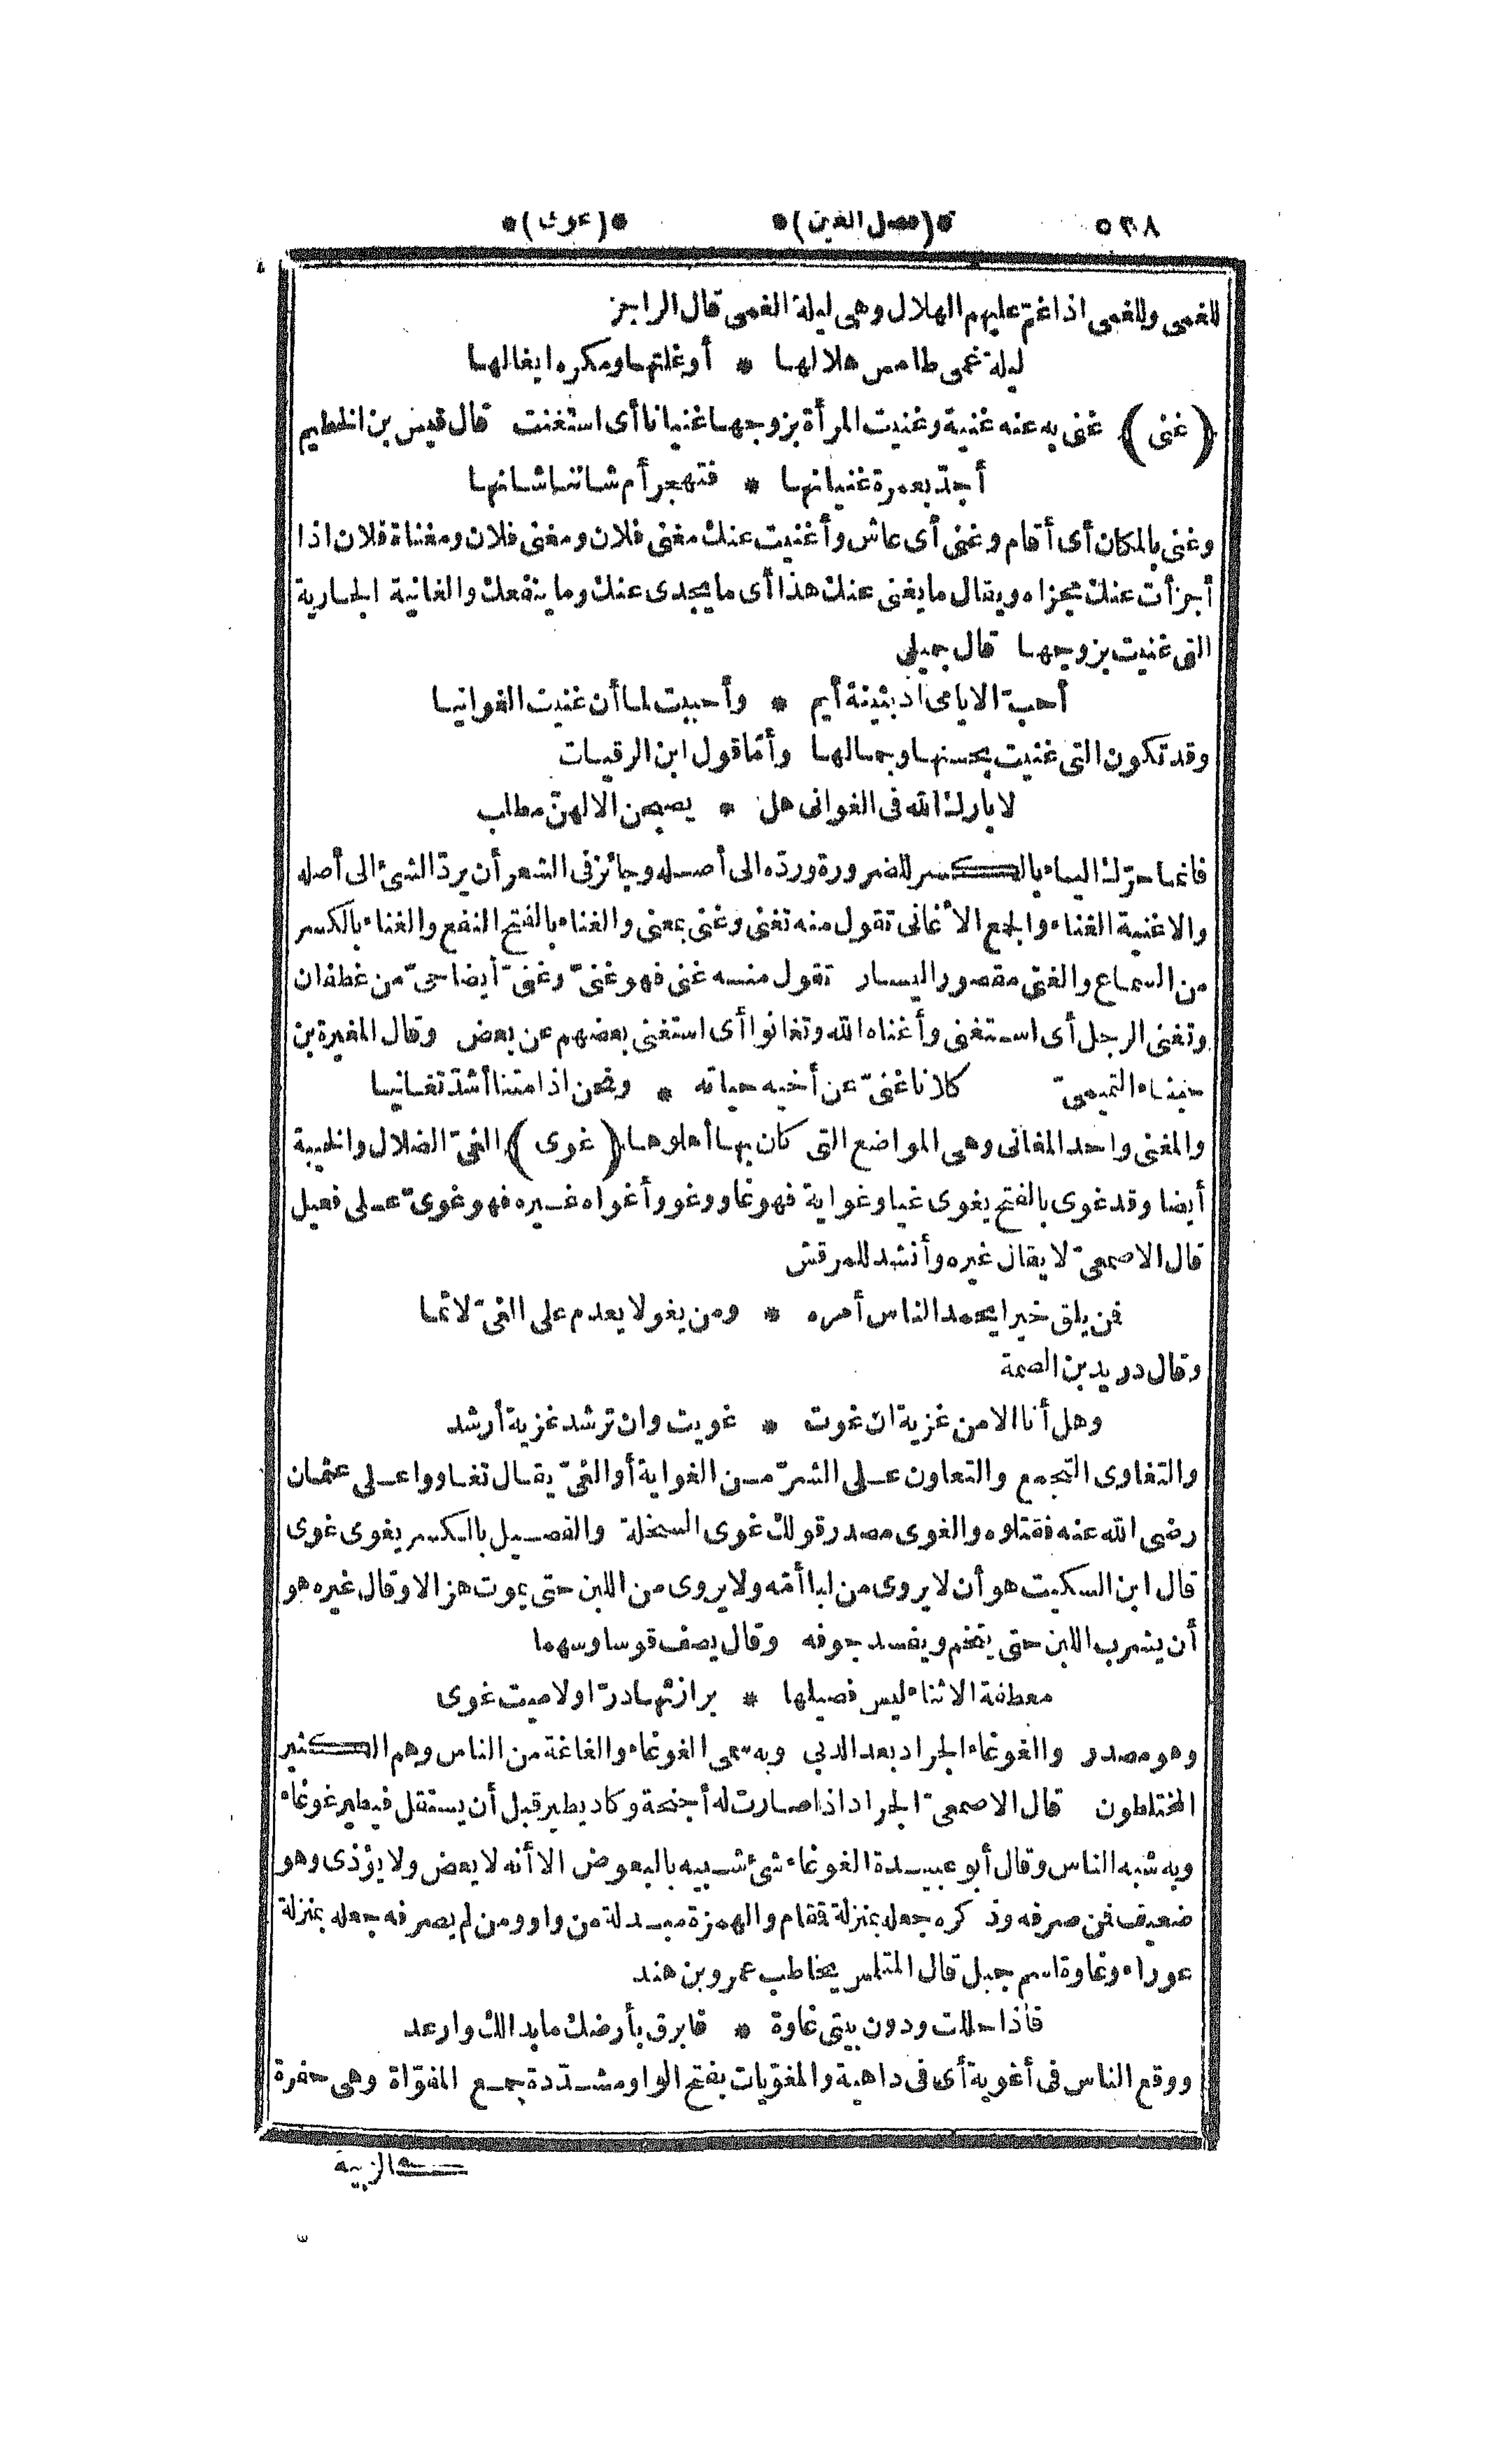 ٥٣٨ *(فصل الغين)* *(غوى)*
للغمى وللغمى اذا غمّ عليهم الهلال وهى ليلة الغمى قال الراجز
ليلة غمى طامس هلالها * أوغلتها ومكره ايغالها
(غنى) غنى به عنه غنية وغنيت المرأة بزوجها غنيانا أى استغنت قال قيس بن الخطيم
أجدّ بعمرة غنيانها * فتهجر أم شاننا شانها
وغنى بالمكان أى أقام وغنى أى عاش وأغنيت عنك مغنى فلان ومغنى فلان ومغناة فلان اذا
أجزأت عنك مجزاه ويقال ما يغنى عنك هذا أى ما يجدى عنك وما ينفعك والغانية الجارية
التى غنيت بزوجها قال جميل
أحبّ الايامى اذ بثينة أيم * وأحببت لما أن غنيت الغوانيا
وقد تكون التى غنيت بحسنها وجمالها وأمّا قول ابن الرقيات
لا بارك الله فى الغوانى هل * يصبحن الا لهنّ مطلب
فانما حرّك الياء بالكسر للضرورة وردّه الى أصله وجائز فى الشعر أن يردّ الشئ الى أصله
والاغنية الغناء والجمع الأغانى تقول منه تغنى وغنى بمعنى والغناء بالفتح النفع والغناء بالكسر
من السماع والغنى مقصور اليسار تقول منه غنى فهو غنىّ وغنىّ أيضا حىّ من غطفان
وتغنى الرجل أى استغنى وأغناه الله وتغانوا أى استغنى بعضهم عن بعض وقال المغيرة بن
حبناء التميمىّ كلانا غنىّ عن أخيه حياته * ونحن اذا متنا أشدّ تغانيا
والمغنى واحد المغانى وهى المواضع التى كان بها أهلوها (غوى) الغىّ الضلال والخيبة
أيضا وقد غوى بالفتح يغوى غيا وغواية فهو غاو وغو وأغواه غيره فهو غوىّ على فعيل
قال الاصمعىّ لا يقال غيره وأنشد للمرقش
فمن يلق خيرا يحمد الناس أمره * ومن يغو لا يعدم على الغىّ لائما
وقال دريد بن الصمة
وهل أنا الا من غزية ان غوت * غويت وان ترشد غزية أرشد
والتغاوى التجمع والتعاون على الشرّ من الغواية أو الغىّ يقال تغاووا على عثمان
رضى الله عنه فقتلوه والغوى مصدر قولك غوى السخلة والفصيل بالكسر يغوى غوى
قال ابن السكيت هو أن لا يروى من لبا أمّه ولا يروى من اللبن حتى يموت هزالا وقال غيره هو
أن يشرب اللبن حتى يتخم ويفسد جوفه وقال يصف قوسا وسهما
معطفة الاثناء ليس فصيلها * برازئها درّا ولا ميت غوى
وهو مصدر والغوغاء الجراد بعد الدبى وبه سمى الغوغاء والغاغة من الناس وهم الكثير
المختلطون قال الاصمعىّ الجراد اذا صارت له أجنحة وكاد يطير قبل أن يستقل فيطير غوغاء
وبه شبه الناس وقال أبو عبيدة الغوغاء شئ شبيه بالبعوض الا أنه لا يعض ولا يؤذى وهو
ضعيف فمن صرفه وذكره جعله بمنزلة قمقام والهمزة مبدلة من واو ومن لم يصرفه جعله بمنزلة
عوراء وغاوة اسم جبل قال المتلمس يخاطب عمرو بن هند
فاذا حللت ودون بيتى غاوة * فابرق بأرضك ما بدا لك وارعد
ووقع الناس فى أغوية أى فى داهية والمغوّيات بفتح الواو مشدّدة جمع المغوّاة وهى حفرة
كالزبية